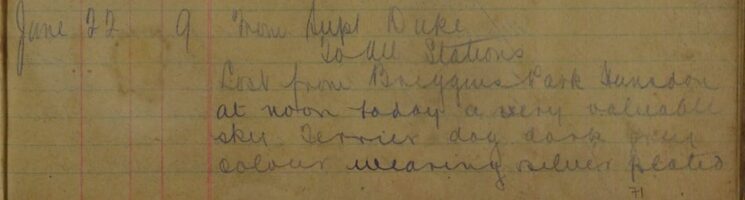 June 22 9 From Supt Duke
to All Stations
Lost from Park Hunsdon
at noon today a very valuable
skye Terrier dog dark grey
colour wearing silver plated
71